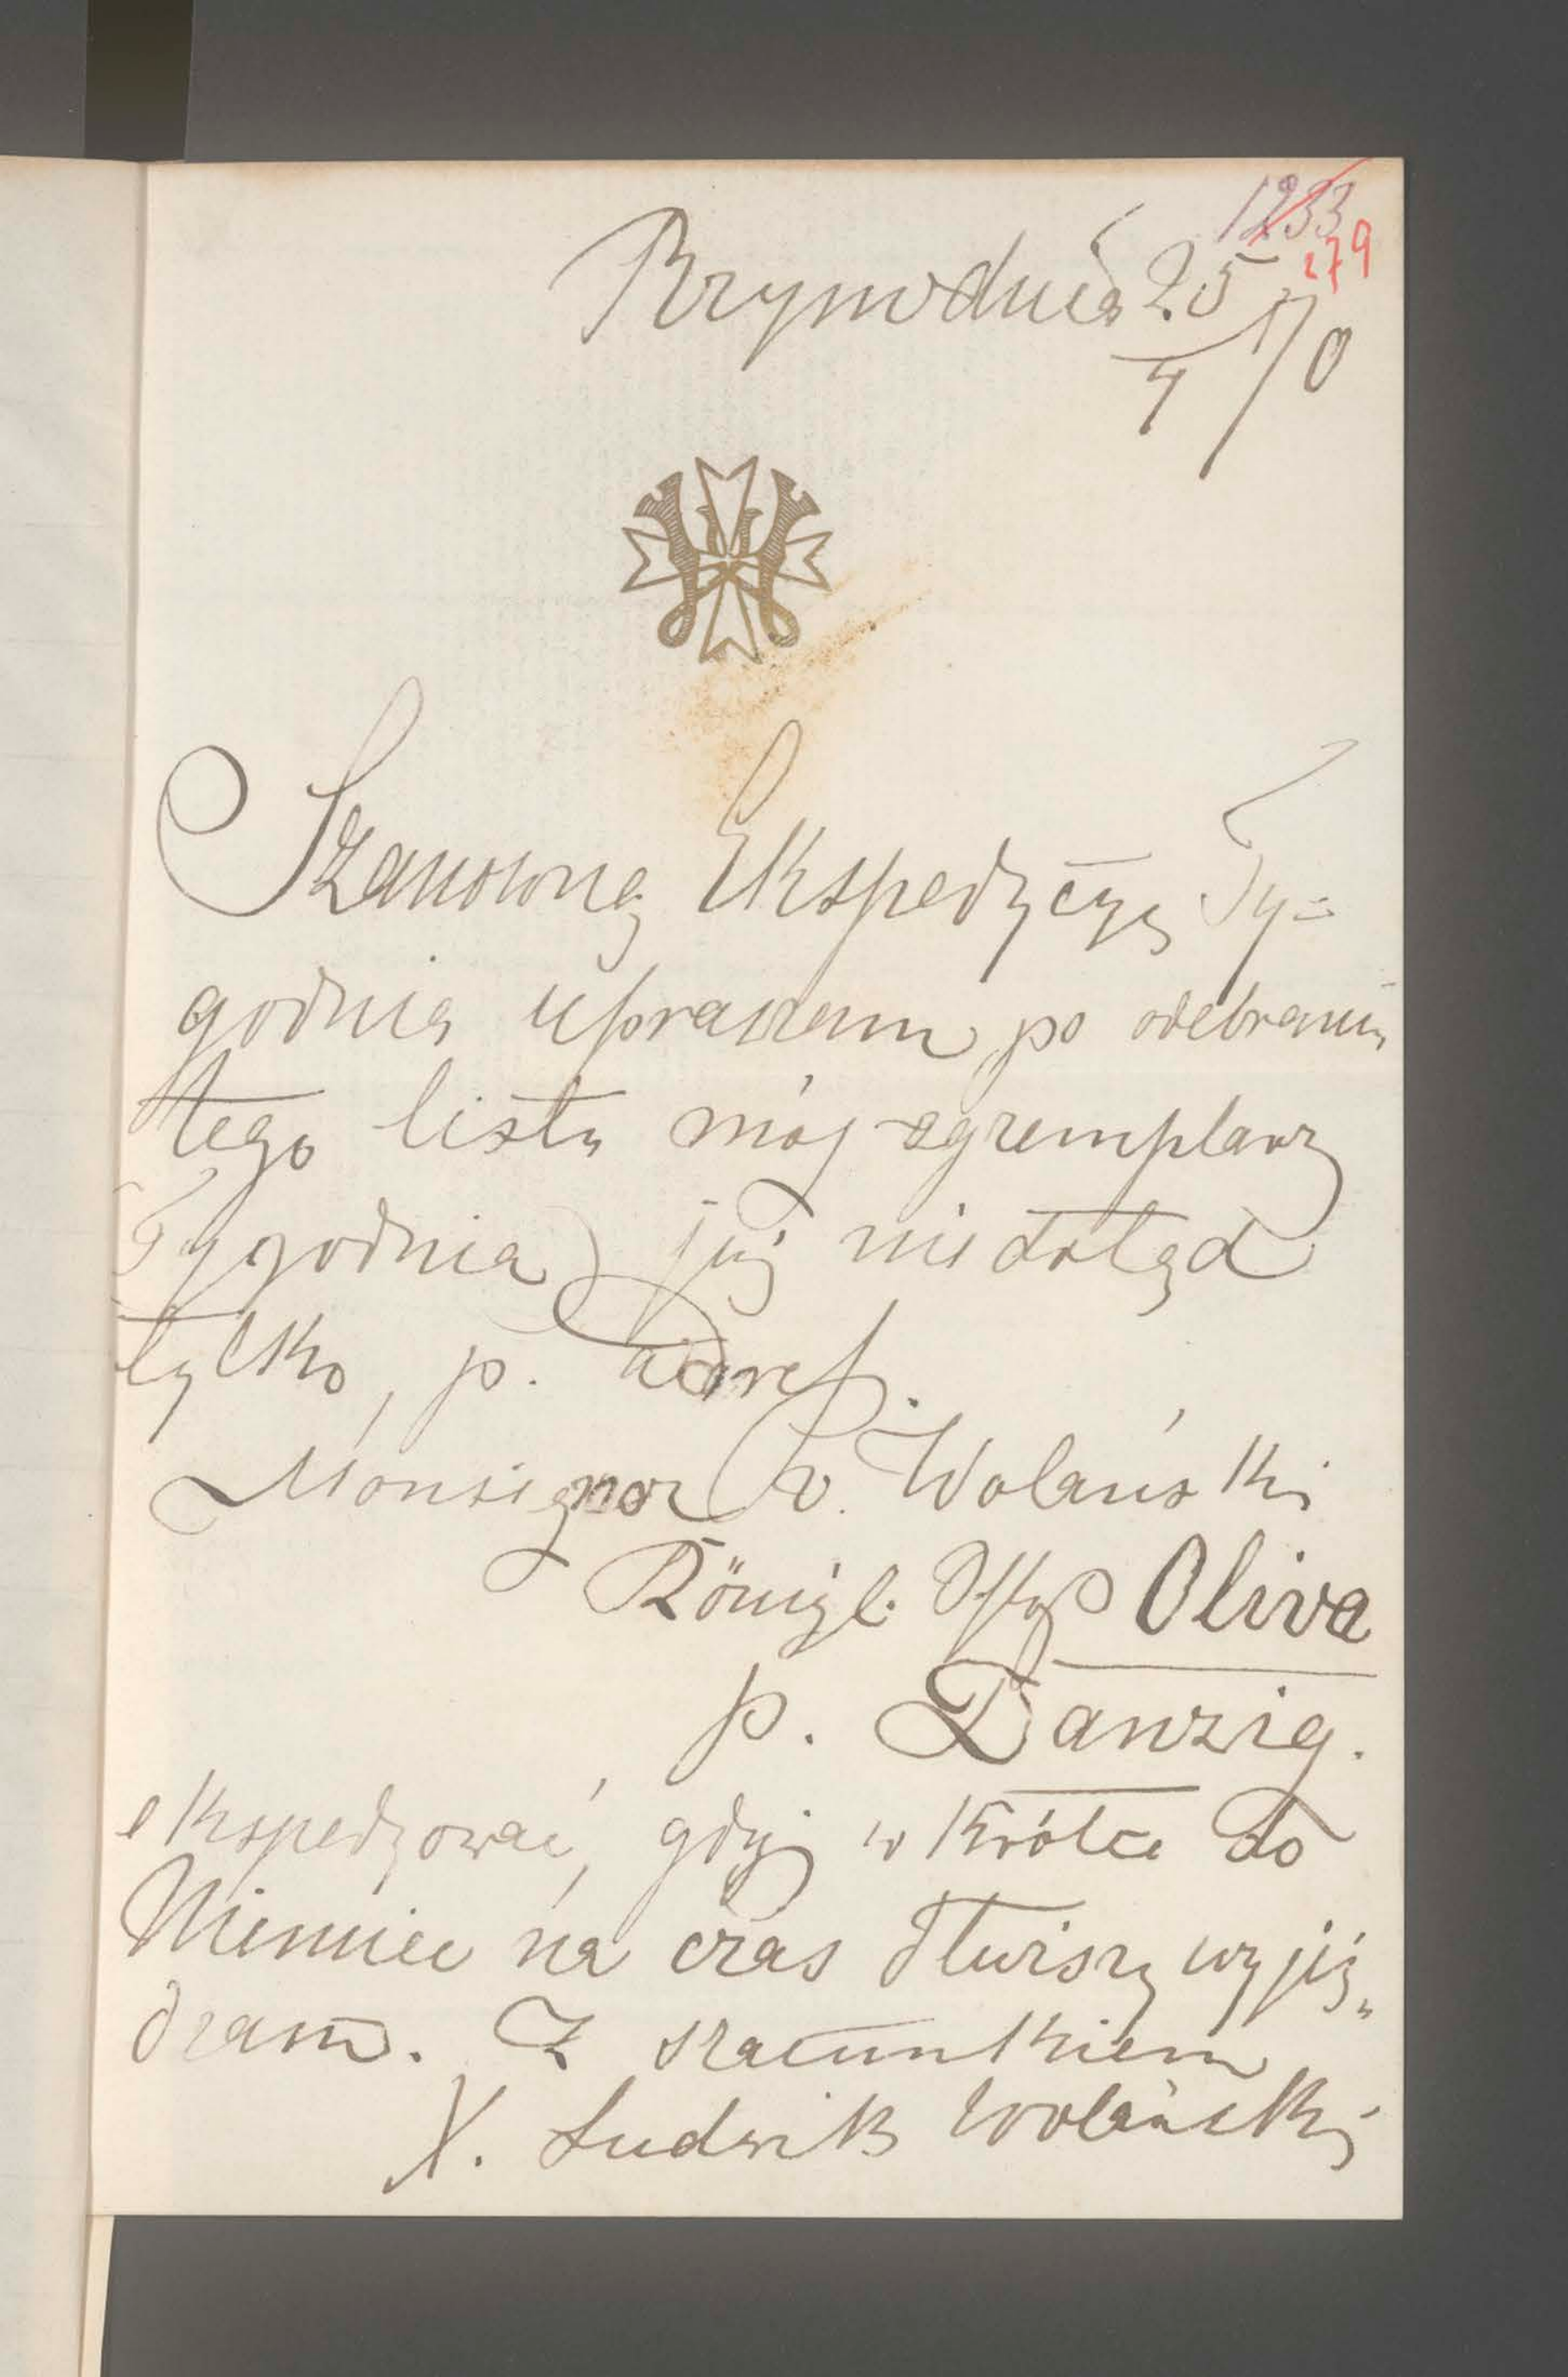 1233
279
Rzym dnia 25/4 70
Szanowną Ekspedycyę Ty=
godnia upraszam, po odebraniu
tego listu mój egzemplarz
Tygodnia już nie dotąd
tylko, p. adres.
Monsignor v. Wolański
Königl. Oliva
p. Danzig.
ekspedyować, gdyż w krótce do
Niemiec na czas dłuższy wyjeż„
dzam. Z szacunkiem
X. Ludwik Wolański